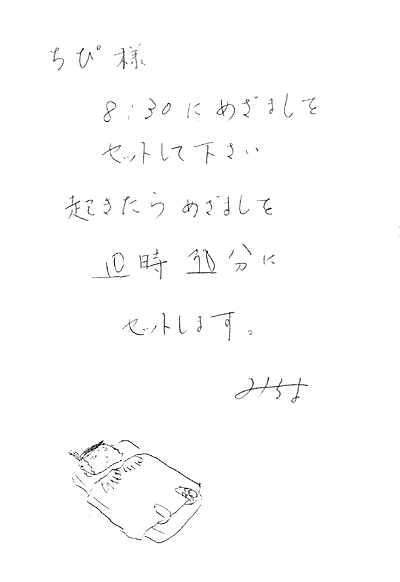 ちぴ様
8:30にめざましを
セットして下さい
起きたらめざましを
10時30分に
セットします。
みちよ